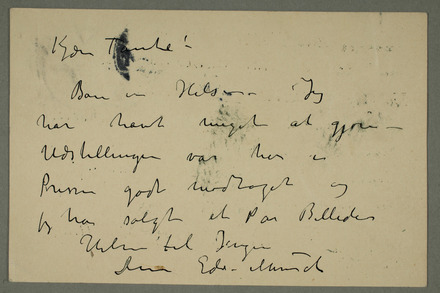 Kjære Tante!
Bare en Hilsen – Jeg
har havt meget at gjøre –
Udstillingen var her i
Pressen godt modtaget og
jeg har solgt et Par Billeder
Hilsen til
Din Edv. Munch